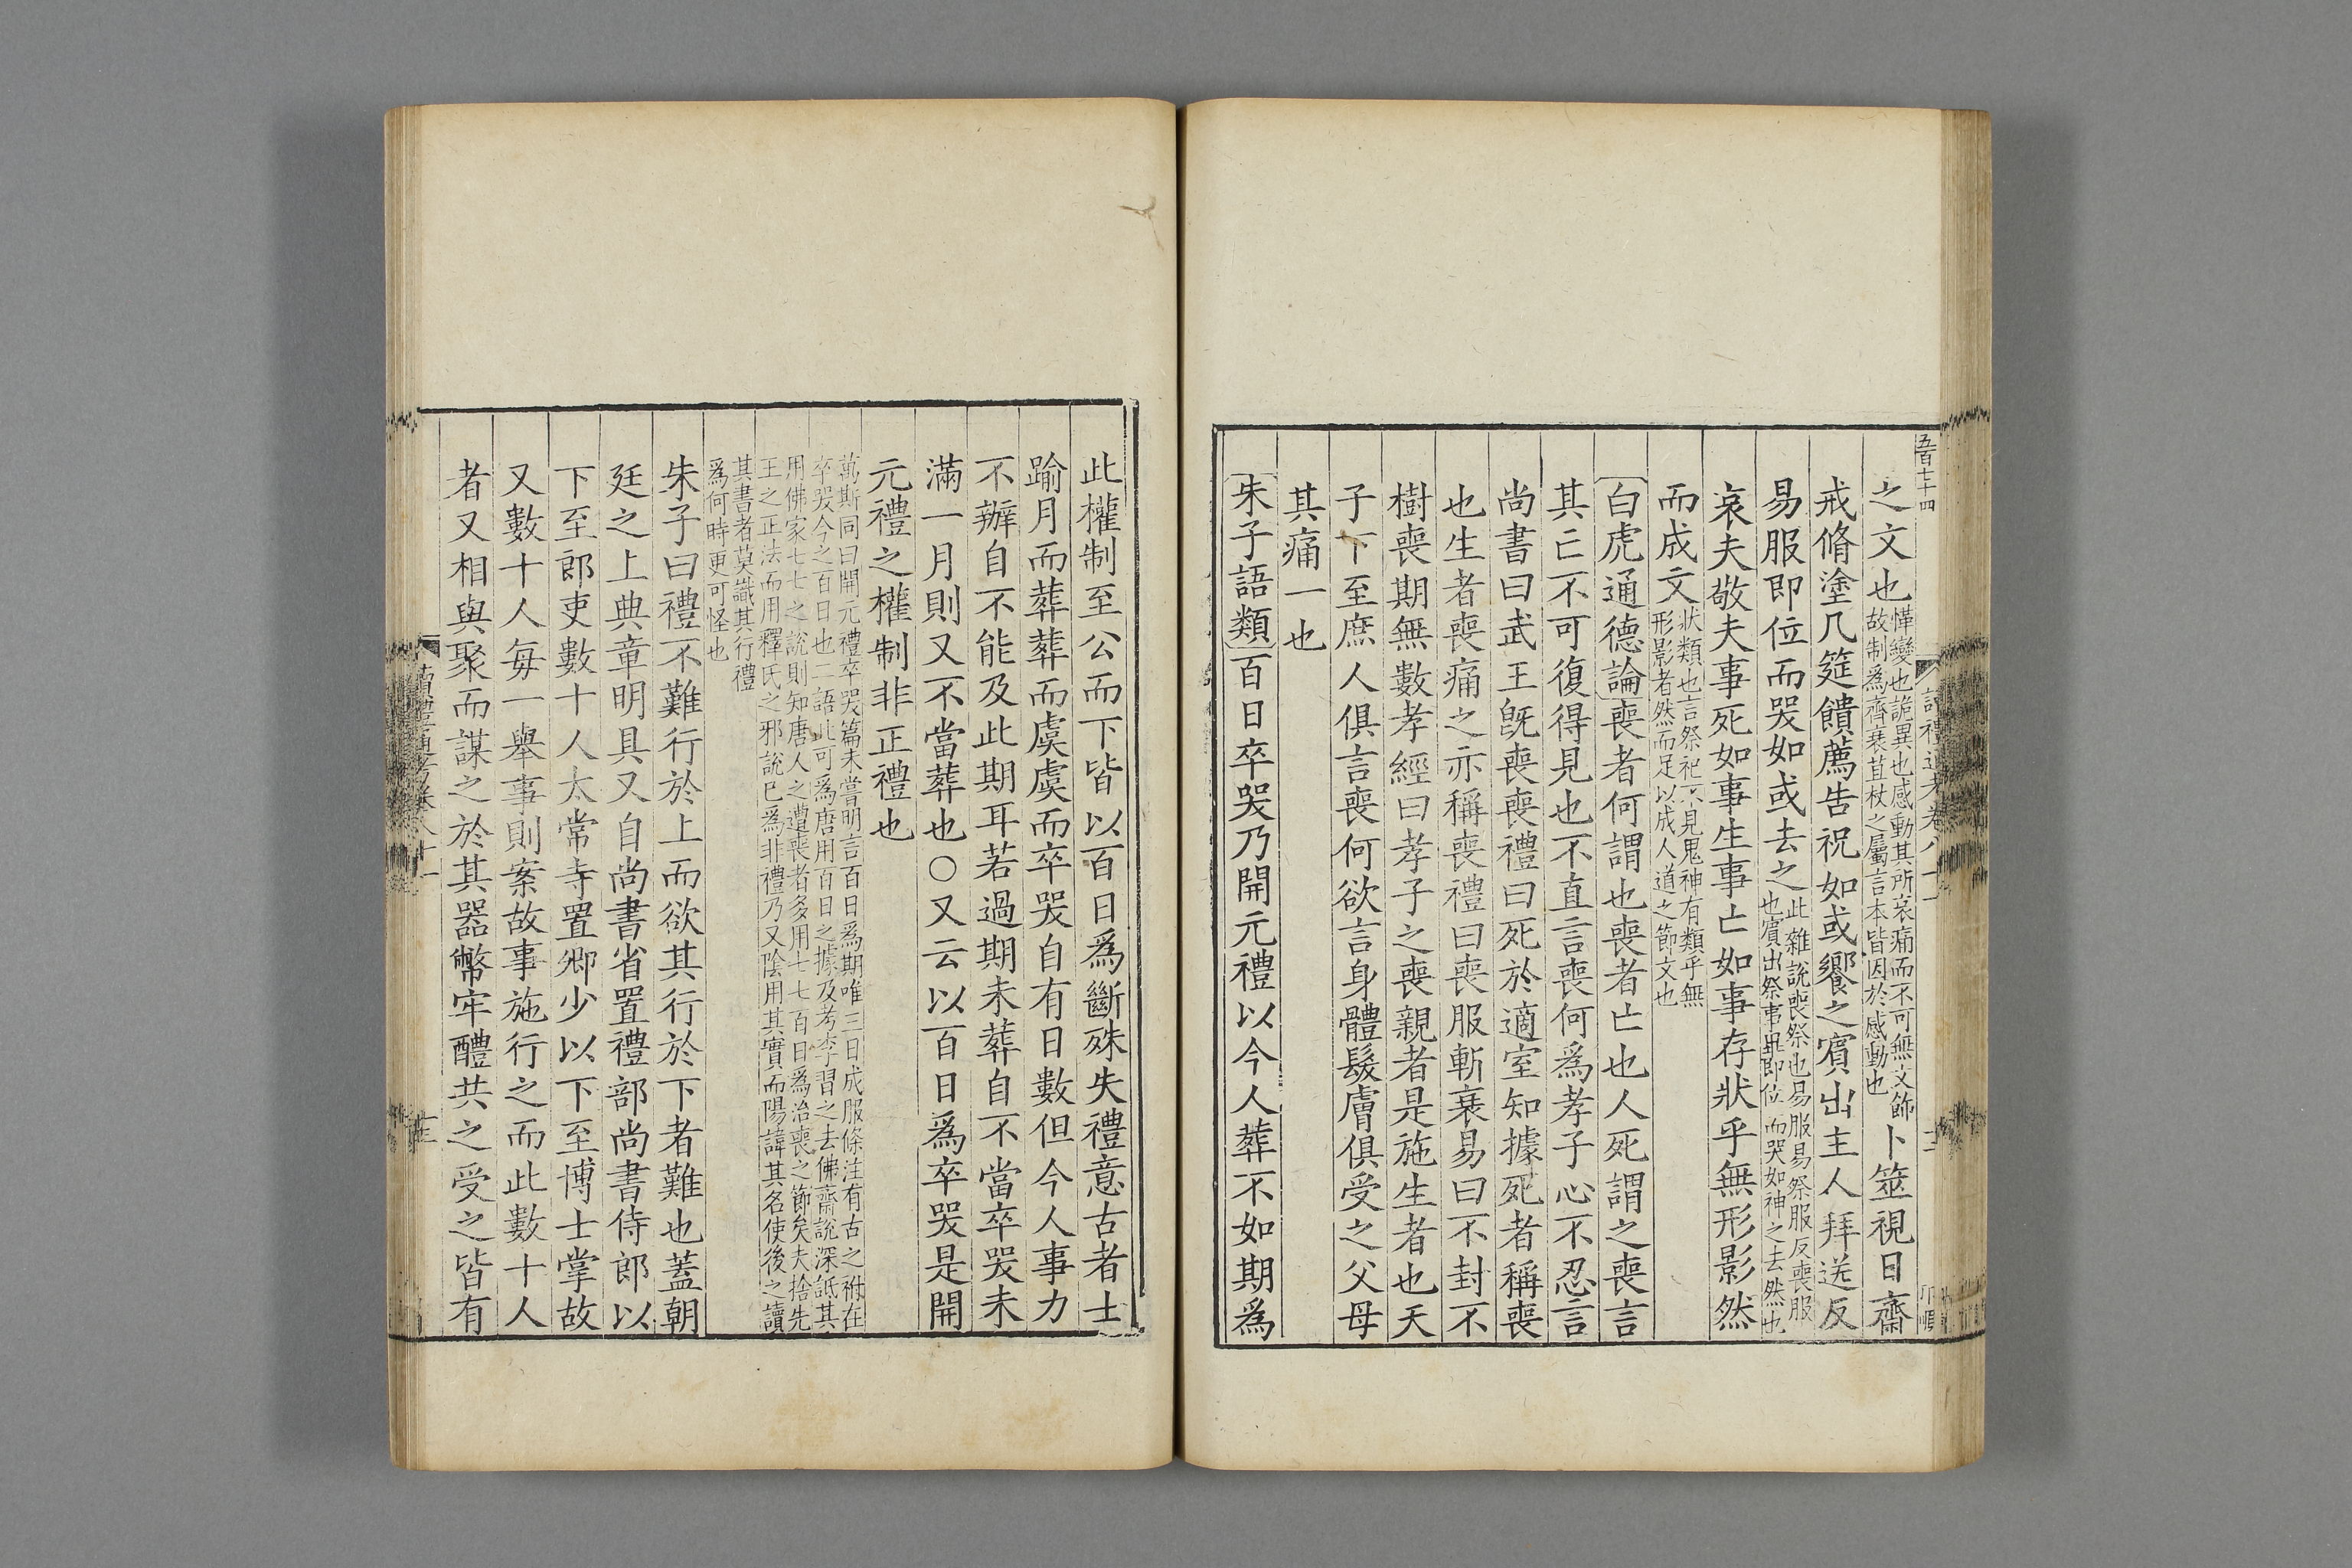 之文也 憚變也詭異也感動其所哀痛而不可無文飾故制為齊衰苴杖之屬言本皆因於感動也 卜筮視日齋
戒脩塗几筵饋薦告祝如或饗之賓出主人拜送反
易服即位而哭如或去之 此雜說喪祭也易服易祭服反喪服也賓出祭事畢即位而哭如神之去然也
哀夫敬夫事死如事生事亡如事存狀乎無形影然
而成文 狀類也言祭祀不見鬼神有類乎無形影者然而足以成人道之節文也
白虎通德論 喪者何謂也喪者亡也人死謂之喪言
其亡不可復得見也不直言喪何為孝子心不忍言
尚書曰武王旣喪喪禮曰死於適室知據死者稱喪
也生者喪痛之亦稱喪禮曰喪服斬衰易曰不封不
樹喪期無數孝經曰孝子之喪親者是施生者也天
子下至庶人俱言喪何欲言身體髮膚俱受之父母
其痛一也
朱子語類 百日卒哭乃開元禮以今人葬不如期為
此權制至公而下皆以百日爲斷殊失禮意古者士
踰月而葬葬而虞虞而卒哭自有日數但今人事力
不辦自不能及此期耳若過期未葬自不當卒哭未
滿一月則又不當葬也○又云以百日爲卒哭是開
元禮之權制非正禮也
萬斯同曰開元禮卒哭篇未嘗明言百日爲期唯三日成服條注有古之祔在
卒哭今之百日也二語此可爲唐用百日之據及考李習之去佛齋說深詆其
用佛家七七之說則知唐人之遭喪者多用七七百日爲治喪之節矣夫捨先
王之正法而用釋氏之邪說已爲非禮乃又陰用其實而陽諱其名使後之讀
其書者莫識其行禮
爲何時更可怪也
朱子曰禮不難行於上而欲其行於下者難也蓋朝
廷之上典章明具又自尚書省置禮部尚書侍郎以
下至郎吏數十人太常寺置卿少以下至博士掌故
又數十人每一舉事則案故事施行之而此數十人
者又相與聚而謀之於其器幣牢醴共之受之皆有